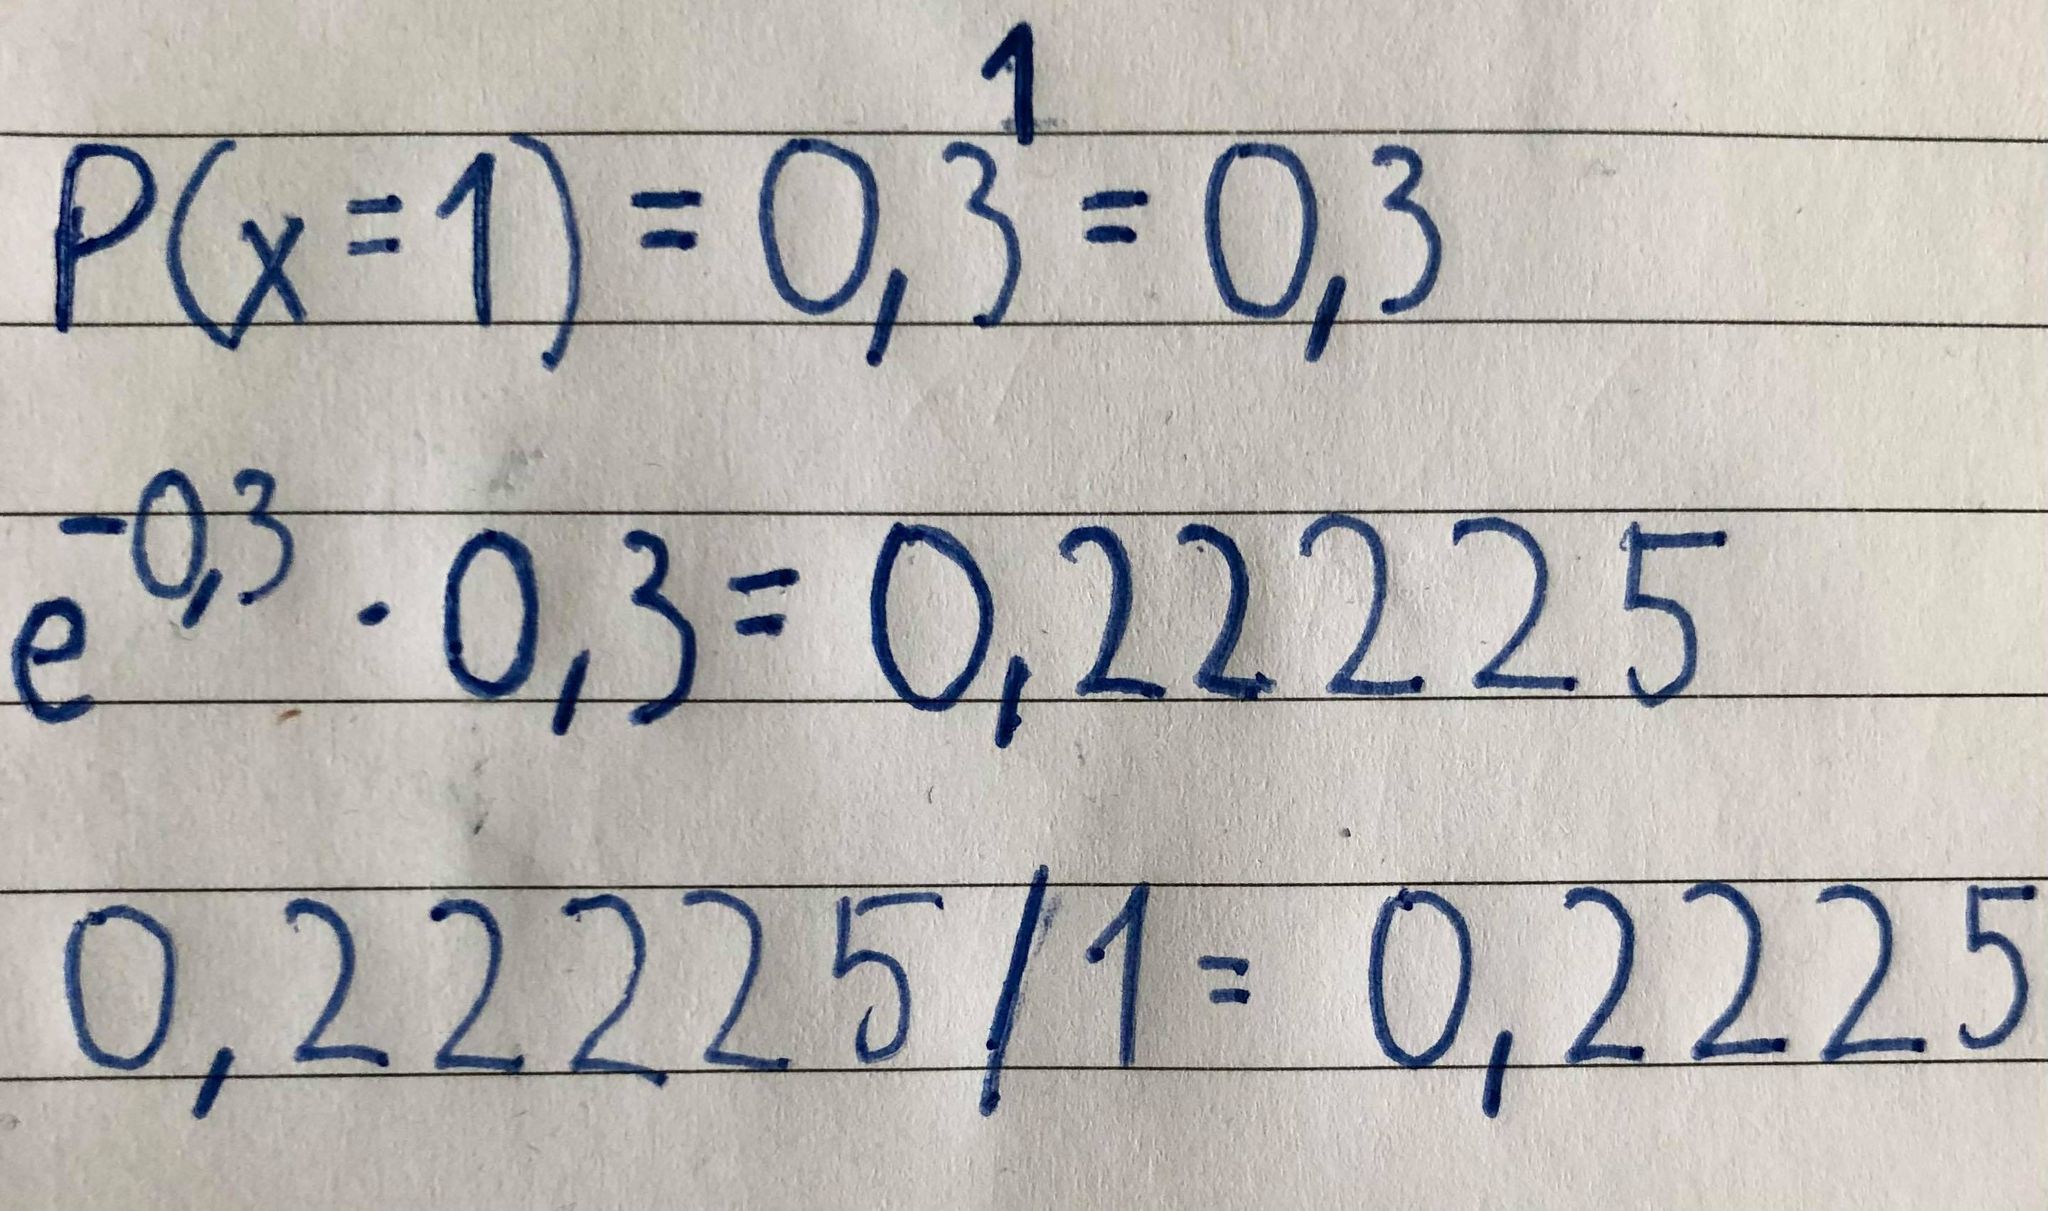 P(x=1) = 0,3¹ = 0,3
e^-0,3 · 0,3 = 0,22225
0,22225/1 = 0,2225